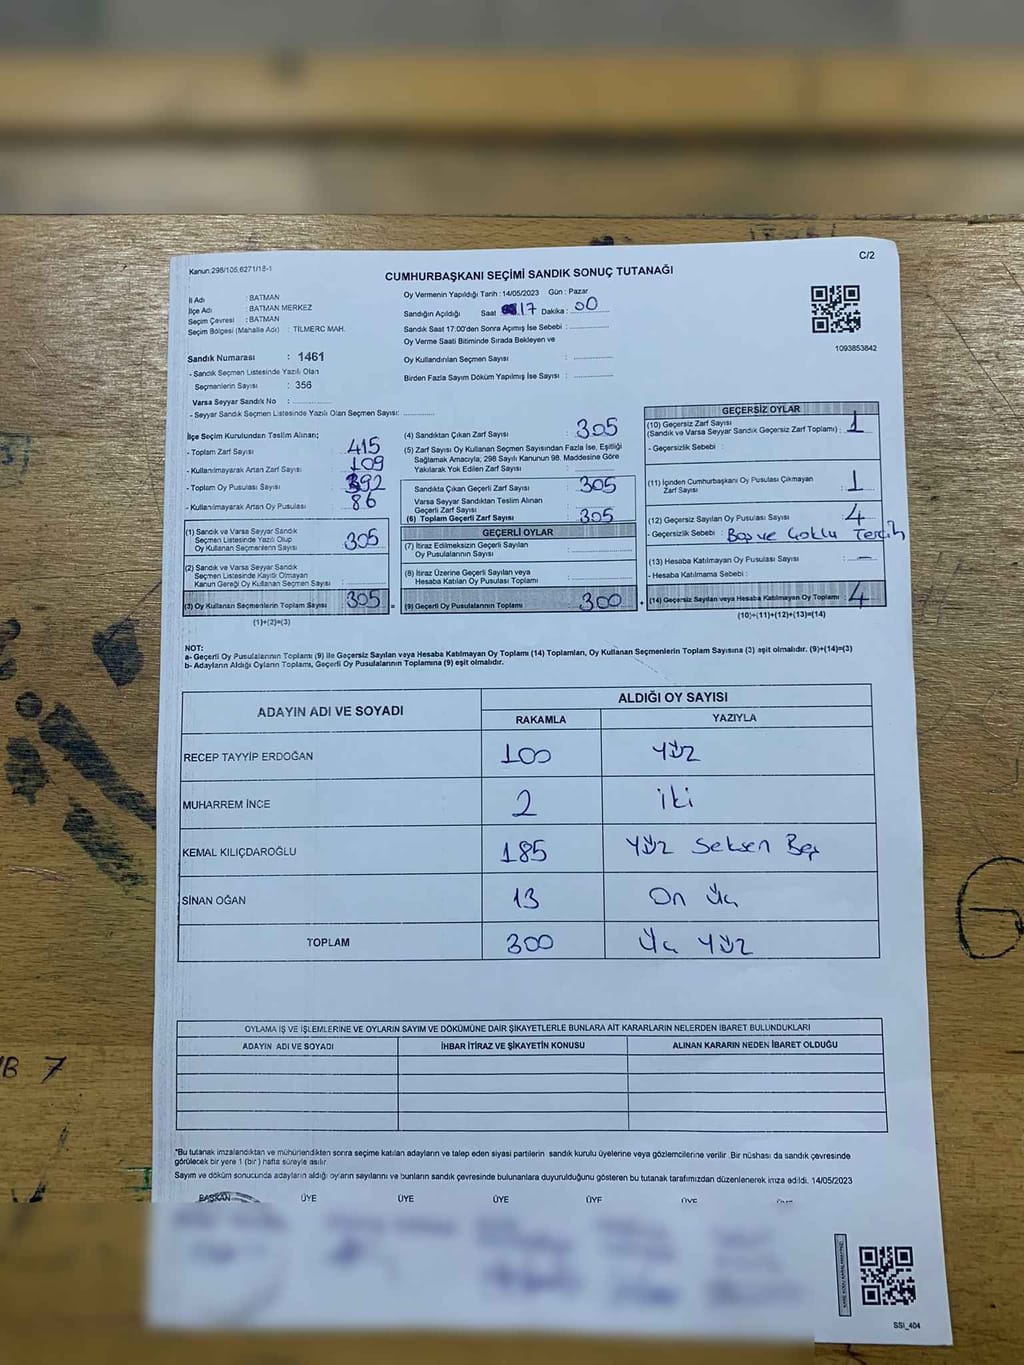 Kanun:298/105,6271/18-1
C/2
CUMHURBAŞKANI SEÇİMİ SANDIK SONUÇ TUTANAĞI
İl Adı : BATMAN
İlçe Adı : BATMAN MERKEZ
Seçim Çevresi : BATMAN
Seçim Bölgesi (Mahalle Adı) : TİLMERC MAH.
Sandık Numarası : 1461
- Sandık Seçmen Listesinde Yazılı Olan
Seçmenlerin Sayısı : 356
Varsa Seyyar Sandık No : ............
- Seyyar Sandık Seçmen Listesinde Yazılı Olan Seçmen Sayısı: ............
Oy Vermenin Yapıldığı Tarih : 14/05/2023 Gün : Pazar
Sandığın Açıldığı Saat 17 Dakika : 00
Sandık Saat 17:00'den Sonra Açımış İse Sebebi : ............
Oy Verme Saati Bitiminde Sırada Bekleyen ve
Oy Kullandırılan Seçmen Sayısı : ............
Birden Fazla Sayım Döküm Yapılmış İse Sayısı : ............
1093853842
İlçe Seçim Kurulundan Teslim Alınan;
- Toplam Zarf Sayısı : 415
- Kullanılmayarak Artan Zarf Sayısı : 109
- Toplam Oy Pusulası Sayısı : 392
- Kullanılmayarak Artan Oy Pusulası : 86
(1) Sandık ve Varsa Seyyar Sandık
Seçmen Listesinde Yazılı Olup
Oy Kullanan Seçmenlerin Sayısı : 305
(2) Sandık ve Varsa Seyyar Sandık
Seçmen Listesinde Kayıtlı Olmayan
Kanun Gereği Oy Kullanan Seçmen Sayısı : ............
(3) Oy Kullanan Seçmenlerin Toplam Sayısı : 305 =
(1)+(2)=(3)
(4) Sandıktan Çıkan Zarf Sayısı : 305
(5) Zarf Sayısı Oy Kullanan Seçmen Sayısından Fazla İse, Eşitliği
Sağlamak Amacıyla, 298 Sayılı Kanunun 98. Maddesine Göre
Yakılarak Yok Edilen Zarf Sayısı : ............
Sandıkta Çıkan Geçerli Zarf Sayısı : 305
Varsa Seyyar Sandıktan Teslim Alınan
Geçerli Zarf Sayısı : ............
(6) Toplam Geçerli Zarf Sayısı : 305
GEÇERLİ OYLAR
(7) İtiraz Edilmeksizin Geçerli Sayılan
Oy Pusulasının Sayısı : ............
(8) İtiraz Üzerine Geçerli Sayılan veya
Hesaba Katılan Oy Pusulası Toplamı : ............
(9) Geçerli Oy Pusulalarının Toplamı : 300 +
GEÇERSİZ OYLAR
(10) Geçersiz Zarf Sayısı
(Sandık ve Varsa Seyyar Sandık Geçersiz Zarf Toplamı) : 1
- Geçersizlik Sebebi :
(11) İçinden Cumhurbaşkanı Oy Pusulası Çıkmayan
Zarf Sayısı : 1
(12) Geçersiz Sayılan Oy Pusulası Sayısı : 4
- Geçersizlik Sebebi : Boş ve Çoklu Tercih
(13) Hesaba Katılmayan Oy Pusulası Sayısı : —
- Hesaba Katılmama Sebebi :
(14) Geçersiz Sayılan veya Hesaba Katılmayan Oy Toplamı : 4
(10)+(11)+(12)+(13)=(14)
NOT:
a- Geçerli Oy Pusulalarının Toplamı (9) ile Geçersiz Sayılan veya Hesaba Katılmayan Oy Toplamı (14) Toplamları, Oy Kullanan Seçmenlerin Toplam Sayısına (3) eşit olmalıdır. (9)+(14)=(3)
b- Adayların Aldığı Oyların Toplamı, Geçerli Oy Pusulalarının Toplamına (9) eşit olmalıdır.
ADAYIN ADI VE SOYADI
ALDIĞI OY SAYISI
RAKAMLA YAZIYLA
RECEP TAYYİP ERDOĞAN 100 Yüz
MUHARREM İNCE 2 iki
KEMAL KILIÇDAROĞLU 185 Yüz Seksen Beş
SİNAN OĞAN 13 On Üç
TOPLAM 300 Üç Yüz
OYLAMA İŞ VE İŞLEMLERİNE VE OYLARIN SAYIM VE DÖKÜMÜNE DAİR ŞİKAYETLERLE BUNLARA AİT KARARLARIN NELERDEN İBARET BULUNDUKLARI
ADAYIN ADI VE SOYADI İHBAR İTİRAZ VE ŞİKAYETİN KONUSU ALINAN KARARIN NEDEN İBARET OLDUĞU
*Bu tutanak imzalandıktan ve mühürlendikten sonra seçime katılan adayların ve talep eden siyasi partilerin sandık kurulu üyelerine veya gözlemcilerine verilir. Bir nüshası da sandık çevresinde
görülecek bir yere 1 (bir) hafta süreyle asılır.
Sayım ve döküm sonucunda adayların aldığı oyların sayılarını ve bunların sandık çevresinde bulunanlara duyurulduğunu gösteren bu tutanak tarafımızdan düzenlenerek imza edildi. 14/05/2023
BAŞKAN ÜYE ÜYE ÜYE ÜYE ÜYE ÜYE
SSI_404
B 7